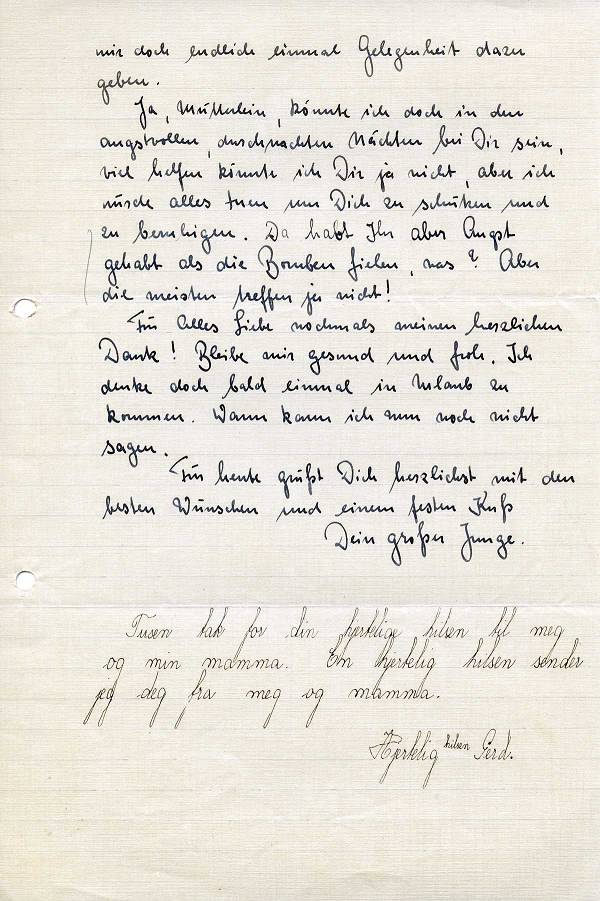 mir doch endlich einmal Gelegenheit dazu
geben.
Ja, Mutterlein, könnte ich doch in den
angstvollen, durchwachten Nächten bei Dir sein,
viel helfen könnte ich Dir ja nicht, aber ich
würde alles tuen um Dich zu schützen und
zu beruhigen. Da habt Ihr aber Angst
gehabt als die Bomben fielen, was? Aber
die meisten treffen ja nicht!
Für Alles Liebe nochmals meinen herzlichen
Dank! Bleibe mir gesund und froh. Ich
denke doch bald einmal in Urlaub zu
kommen. Wann kann ich nun noch nicht
sagen.
Für heute grüßt Dich herzlichst mit den
besten Wünschen und einem festen Kuß
Dein großer Junge.
Tusen tak for din hjertelige hilsen til meg
og min mamma. En hjertelig hilsen sender
jeg deg fra meg og mamma.
Hjertelig hilsen Gerd.